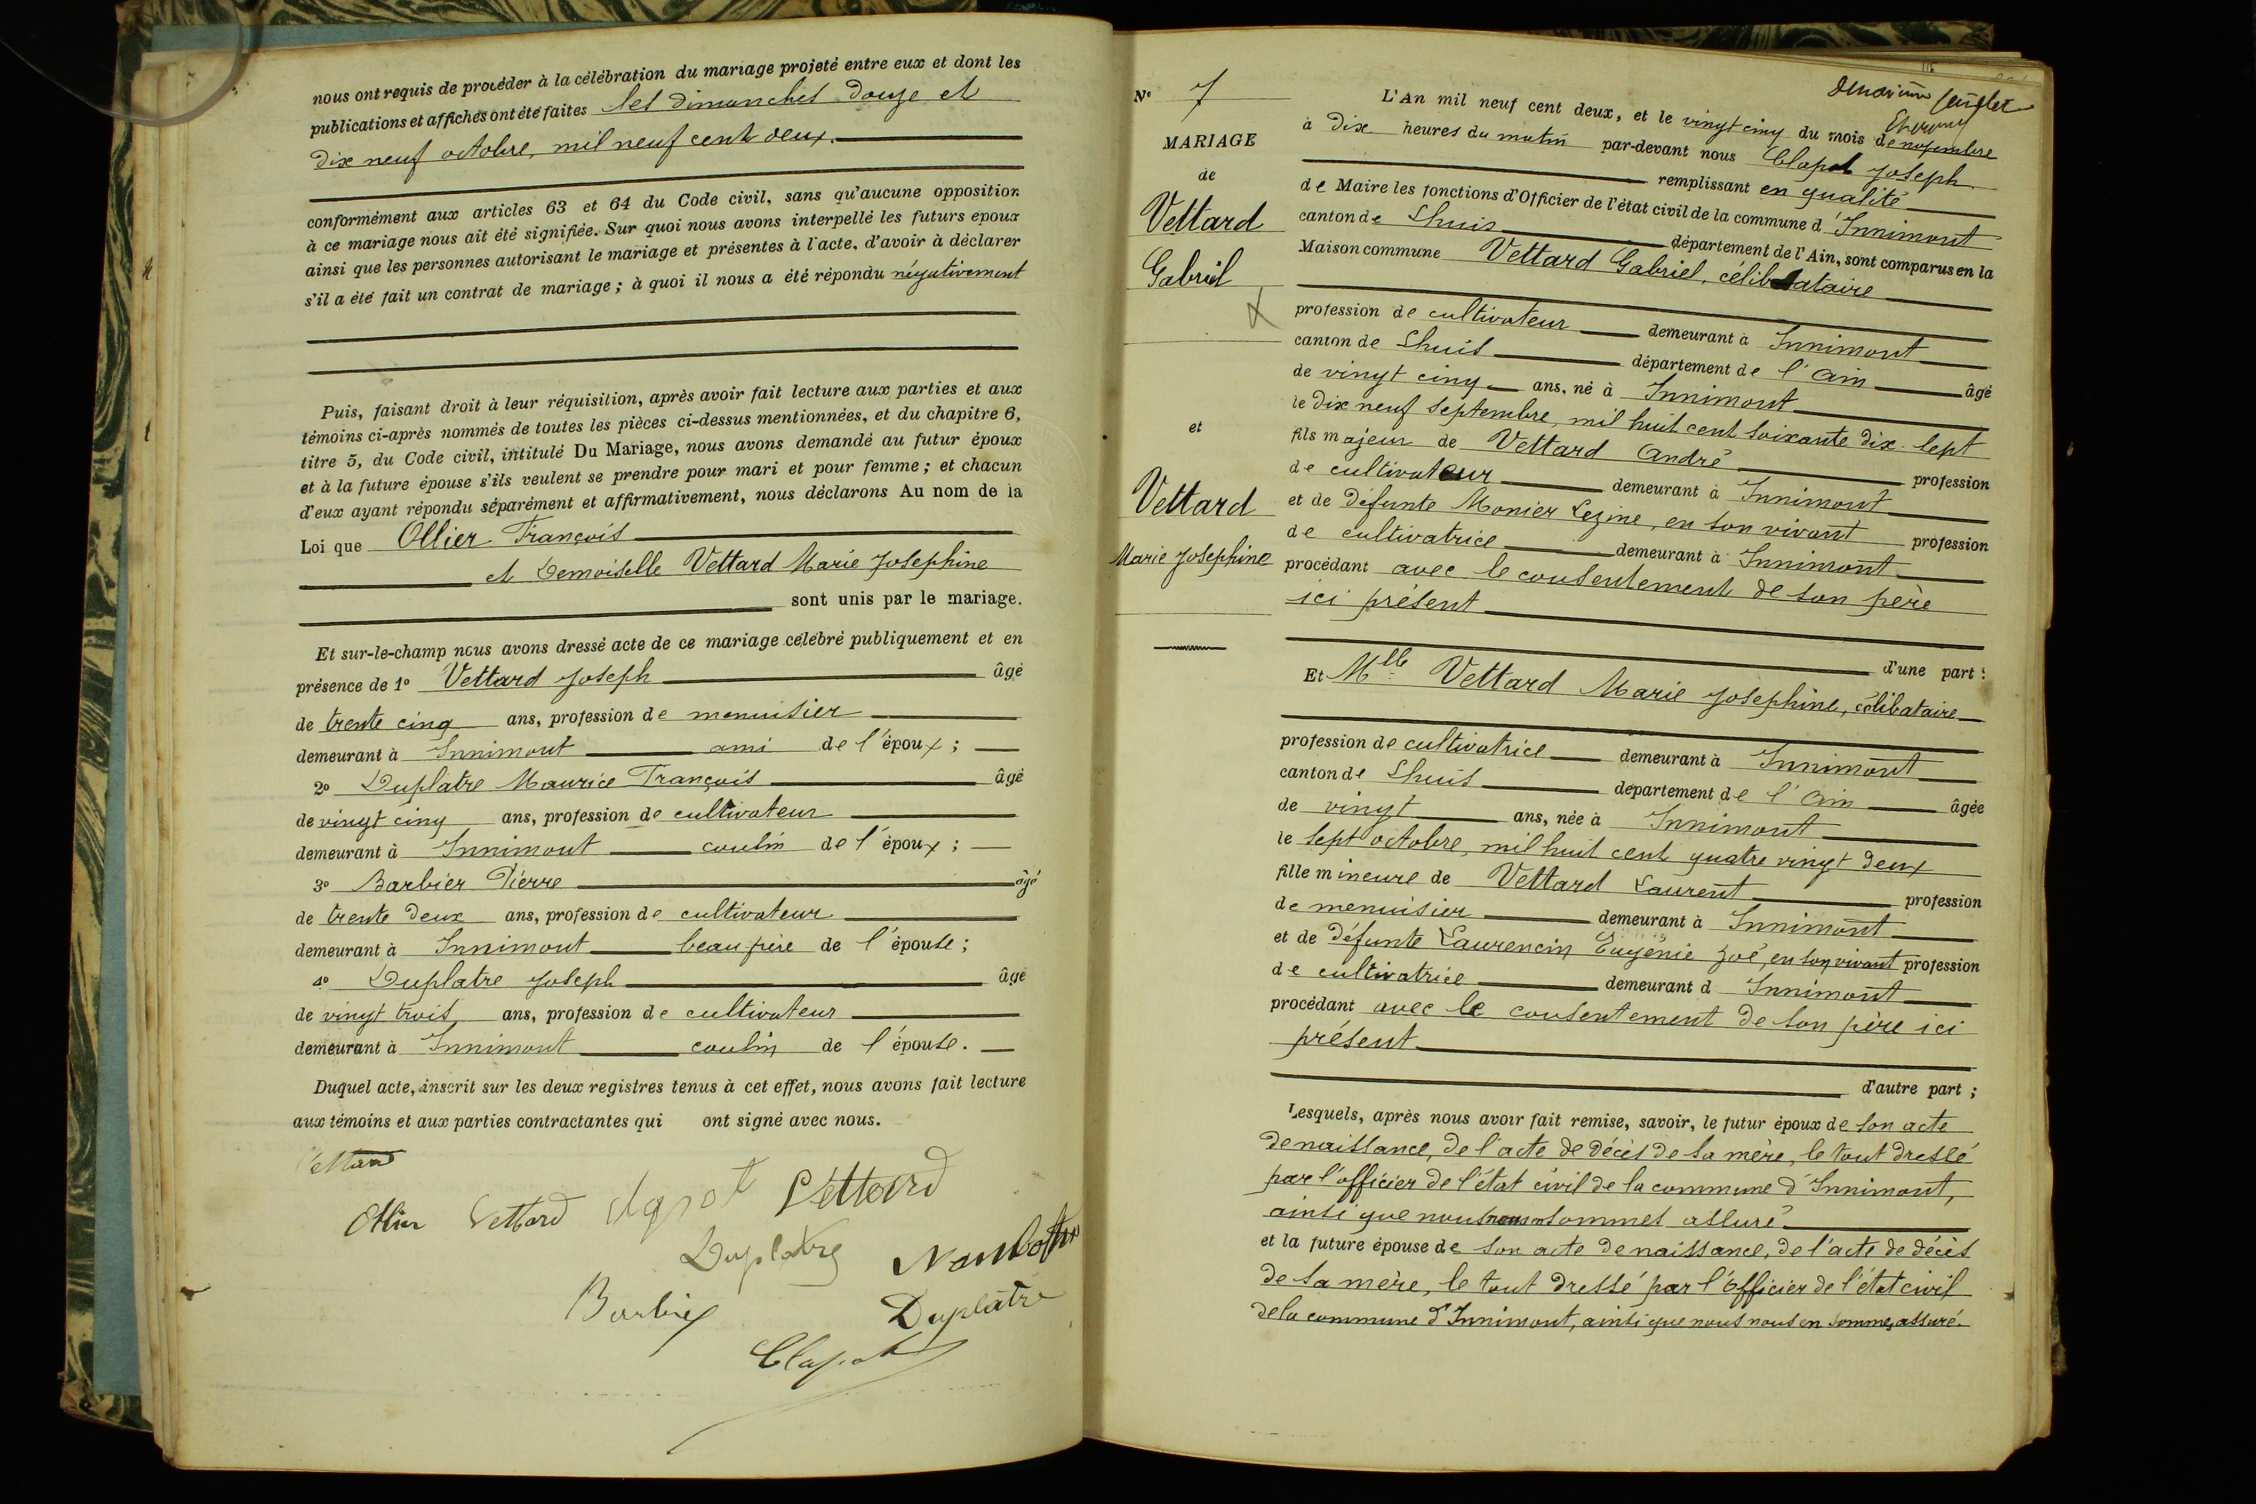 nous ont requis de procéder à la célébration du mariage projeté entre eux et dont les
publications et affiches ont été faites les dimanches douze et
dix neuf octobre, mil neuf cent deux.
conformément aux articles 63 et 64 du Code civil, sans qu'aucune opposition
à ce mariage nous ait été signifiée. Sur quoi nous avons interpellé les futurs époux
ainsi que les personnes autorisant le mariage et présentes à l'acte, d'avoir à déclarer
s'il a été fait un contrat de mariage ; à quoi il nous a été répondu négativement
Puis, faisant droit à leur réquisition, après avoir fait lecture aux parties et aux
témoins ci-après nommés de toutes les pièces ci-dessus mentionnées, et du chapitre 6,
titre 5, du Code civil, intitulé Du Mariage, nous avons demandé au futur époux
et à la future épouse s'ils veulent se prendre pour mari et pour femme ; et chacun
d'eux ayant répondu séparément et affirmativement, nous déclarons Au nom de la
Loi que Ollier François
et Demoiselle Vettard Marie Josephine
sont unis par le mariage.
Et sur-le-champ nous avons dressé acte de ce mariage célébré publiquement et en
présence de 1° Vettard Joseph âgé
de trente cinq ans, profession de menuisier
demeurant à Innimont ami de l'époux ;
2° Duplatre Maurice François âgé
de vingt cinq ans, profession de cultivateur
demeurant à Innimont cousin de l'époux ;
3° Barbier Pierre âgé
de trente deux ans, profession de cultivateur
demeurant à Innimont beau frère de l'épouse ;
4° Duplatre Joseph âgé
de vingt trois ans, profession de cultivateur
demeurant à Innimont cousin de l'épouse.
Duquel acte, inscrit sur les deux registres tenus à cet effet, nous avons fait lecture
aux témoins et aux parties contractantes qui ont signé avec nous.
Vettard
Ollier Vettard Vettard
Duplatre
Barbier Duplatre
Clapot
N° 7
MARIAGE
de
Vettard
Gabriel
et
Vettard
Marie Josephine
L'An mil neuf cent deux, et le vingt cinq du mois de novembre
à dix heures du matin par-devant nous Clapot Joseph
remplissant en qualité
de Maire les fonctions d'Officier de l'état civil de la commune d'Innimont
canton de Lhuis département de l'Ain, sont comparus en la
Maison commune Vettard Gabriel, célibataire
profession de cultivateur demeurant à Innimont
canton de Lhuis département de l'Ain âgé
de vingt cinq ans, né à Innimont
le dix neuf septembre, mil huit cent soixante dix-sept
fils majeur de Vettard André profession
de cultivateur demeurant à Innimont
et de défunte Monier Lezine, en son vivant profession
de cultivatrice demeurant à Innimont
procédant avec le consentement de son père
ici présent
d'une part :
Et Mlle Vettard Marie Josephine, célibataire
profession de cultivatrice demeurant à Innimont
canton de Lhuis département de l'Ain âgée
de vingt ans, née à Innimont
le sept octobre, mil huit cent quatre vingt deux
fille mineure de Vettard Laurent profession
de menuisier demeurant à Innimont
et de défunte Laurencin Eugénie Zoé, en son vivant profession
de cultivatrice demeurant à Innimont
procédant avec le consentement de son père ici
présent
d'autre part ;
Lesquels, après nous avoir fait remise, savoir, le futur époux de son acte
de naissance, de l'acte de décès de sa mère, le tout dressé
par l'officier de l'état civil de la commune d'Innimont,
ainsi que nous sommes assuré
et la future épouse de son acte de naissance, de l'acte de décès
de sa mère, le tout dressé par l'officier de l'état civil
de la commune d'Innimont, ainsi que nous nous en sommes assuré.